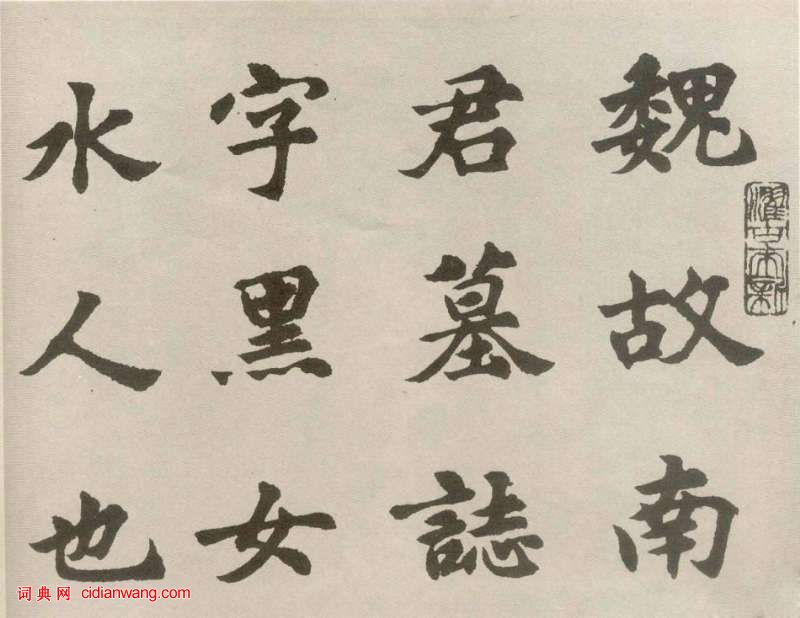 魏故南
君墓誌
字黑女
水人也
词典网 cidianwang.com